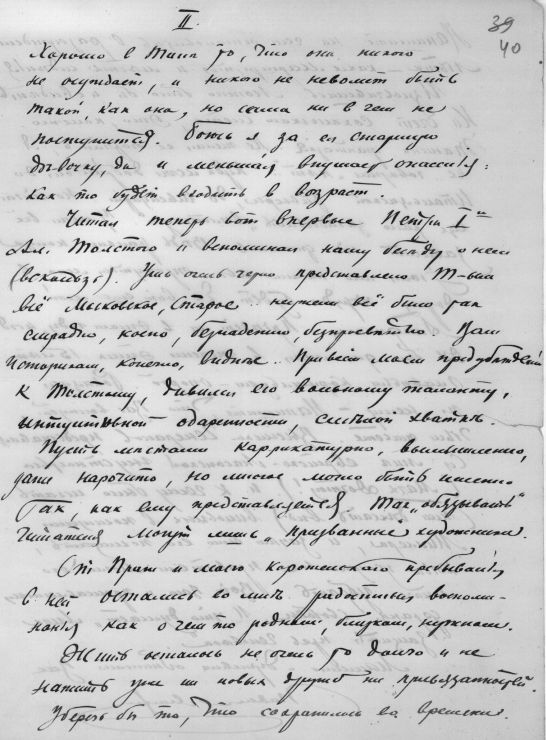 II.
39
40
Хорошо в Тане то, что она никого
не осуждает, и никого не неволит быть
такой, как она, но сама ни в чем не
поступится. Боюсь я за ея старшую
дѣвочку, да и меньшая внушает опасенія:
как то будет входить в возраст.
Читал теперь вот впервые Петра I-го
Ал. Толстого и вспоминал нашу бесѣду о нем
(вскользь). Уж очень черно представлено Т-вым
всё Московское, старое.. неужели всё было так
смрадно, косно, безнадежно безпросвѣтно. Вам
историкам, конечно, виднѣе. При всем моем предубѣжденіи
к Толстому, дивился его вольному таланту,
интуитивной одаренности, смѣлой хваткѣ.
Пусть мѣстами каррикатурно, вымышленно,
даже нарочито, но многое может быть именно
так, как ему представляется. Так „обязывать“
читателя могут лишь „призванные“ художники.
От Праги и моего коротенького пребыванія
в ней остались во мнѣ радостныя воспоми-
нанія как о чем то родном, близком, нужном.
Жить осталось не очень то долго и не
нажить уже ни новых дружб ни привязанностей.
Уберечь бы то, что сохранилось во времени.